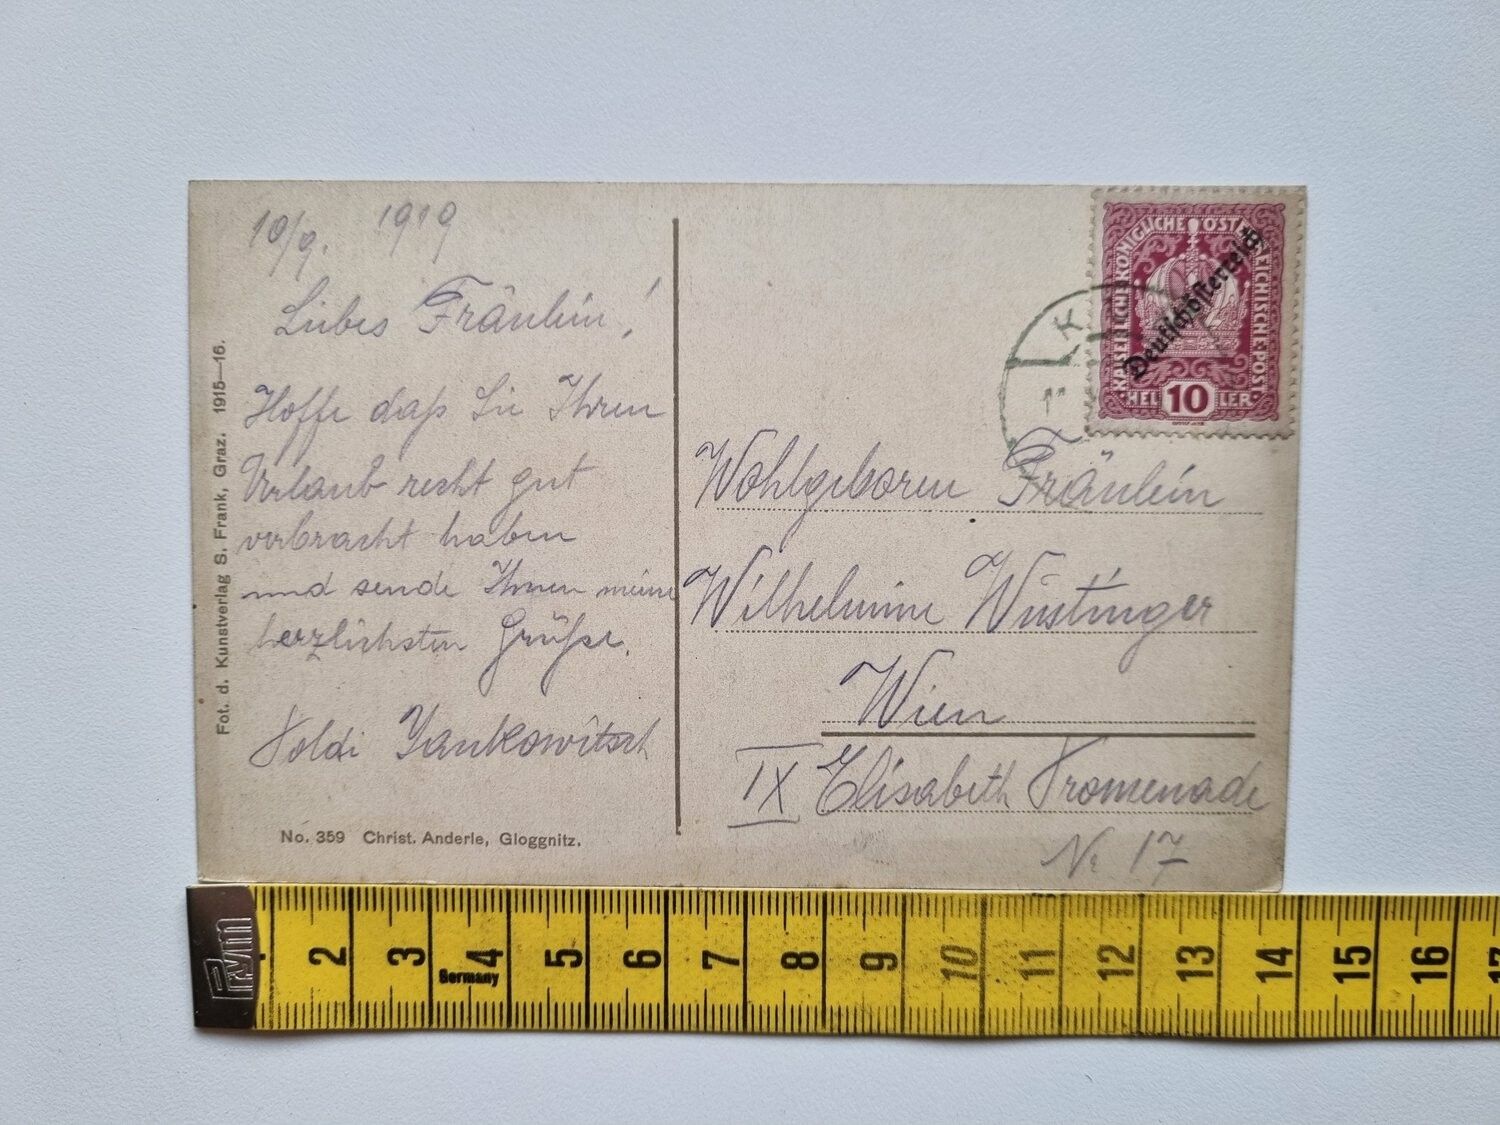 10/9. 1919
Liebes Fräulein!
Hoffe daß Sie Ihren
Urlaub recht gut
verbracht haben
und sende Ihnen meine
herzlichsten Grüße.
Poldi Jankowitsch
No. 359 Christ. Anderle, Gloggnitz.
Fot. d. Kunstverlag S. Frank, Graz. 1915—16.
KAISERLICHE KÖNIGLICHE ÖSTERREICHISCHE POST
Deutschösterreich
HEL 10 LER
K
Wohlgeboren Fräulein
Wilhelmine Wüstinger
Wien
IX Elisabeth Promenade
Nr 17
Prym
2 3 4 5 6 7 8 9 10 11 12 13 14 15 16 17
Germany